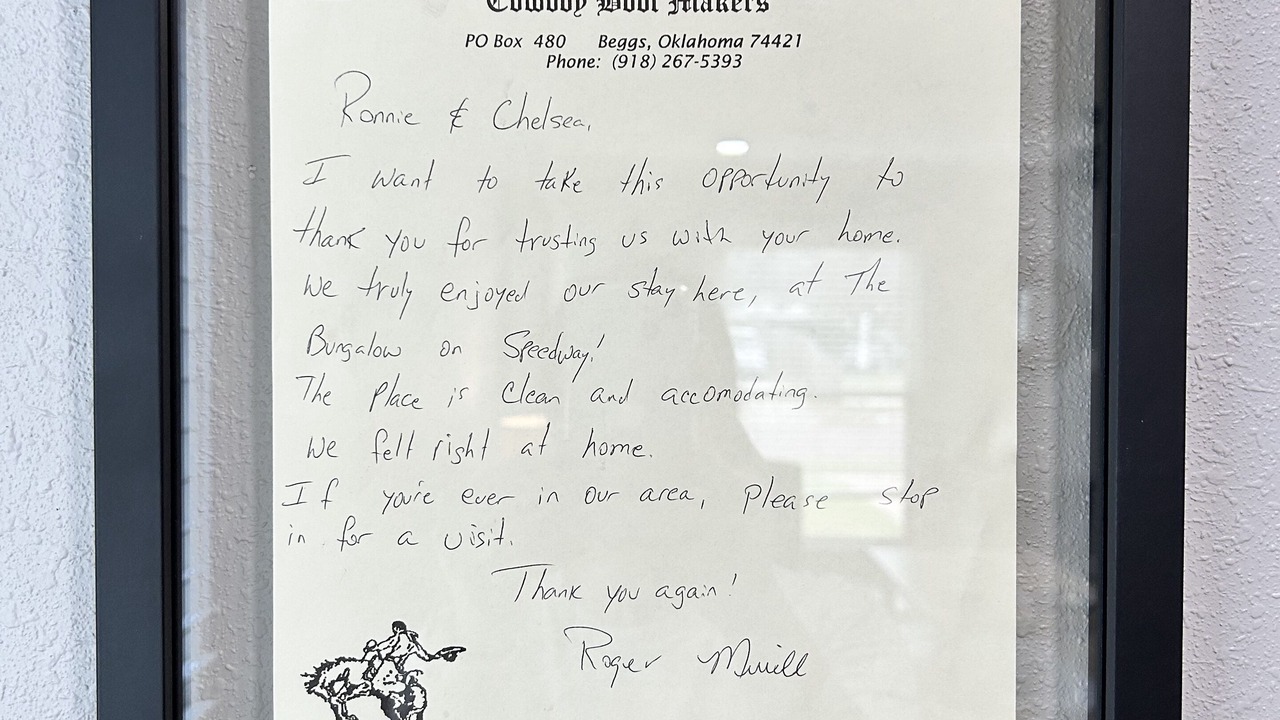 Cowboy Boot Makers
PO Box 480 Beggs, Oklahoma 74421
Phone: (918) 267-5393
Ronnie & Chelsea,
I want to take this opportunity to
thank you for trusting us with your home.
We truly enjoyed our stay here, at The
Bungalow on Speedway!
The place is clean and accomodating.
We felt right at home.
If you're ever in our area, please stop
in for a visit.
Thank you again!
Roger